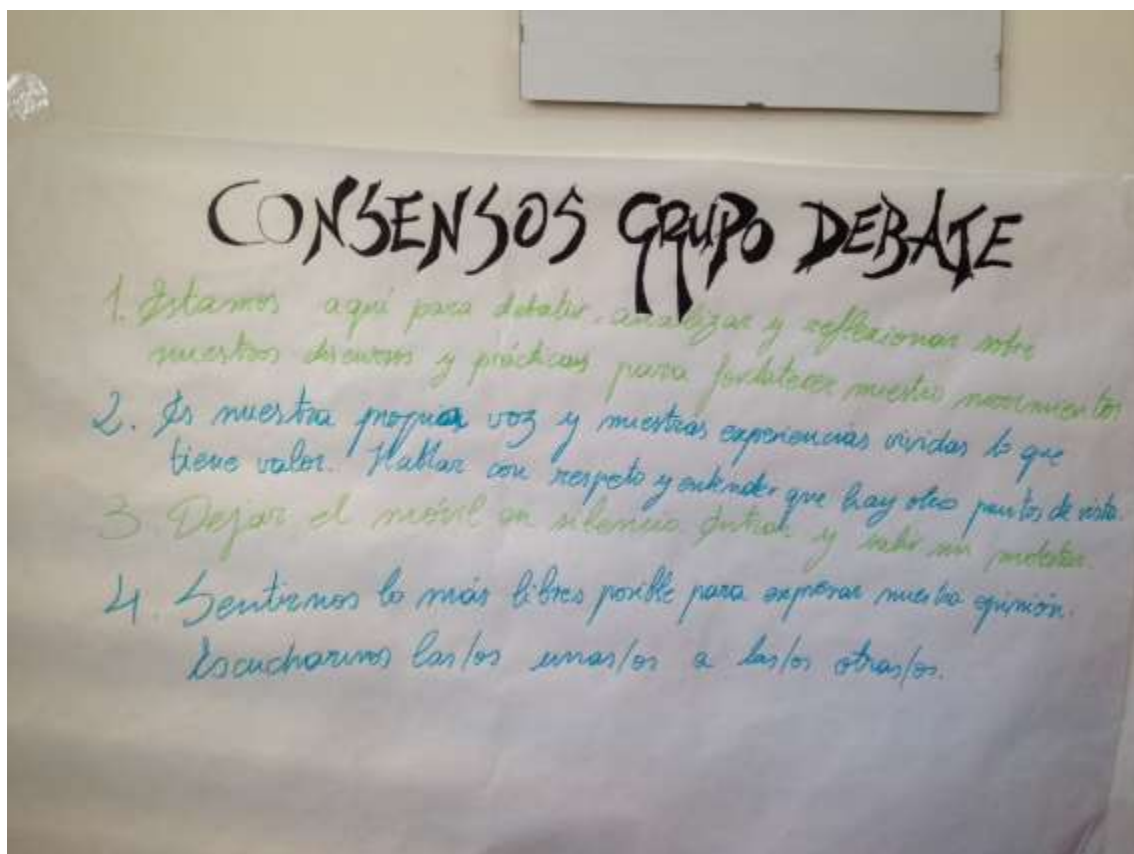 CONSENSOS GRUPO DEBATE
1. Estamos aquí para debatir, analizar y reflexionar sobre
nuestros discursos y prácticas para fortalecer nuestro movimientos
2. Es nuestra propia voz y nuestras experiencias vividas lo que
tiene valor. Hablar con respeto y entender que hay otros puntos de vista.
3. Dejar el móvil en silencio. Entrar y salir sin molestar.
4. Sentirnos lo más libres posible para expresar nuestra opinión.
Escucharnos las/os unas/os a las/os otras/os.